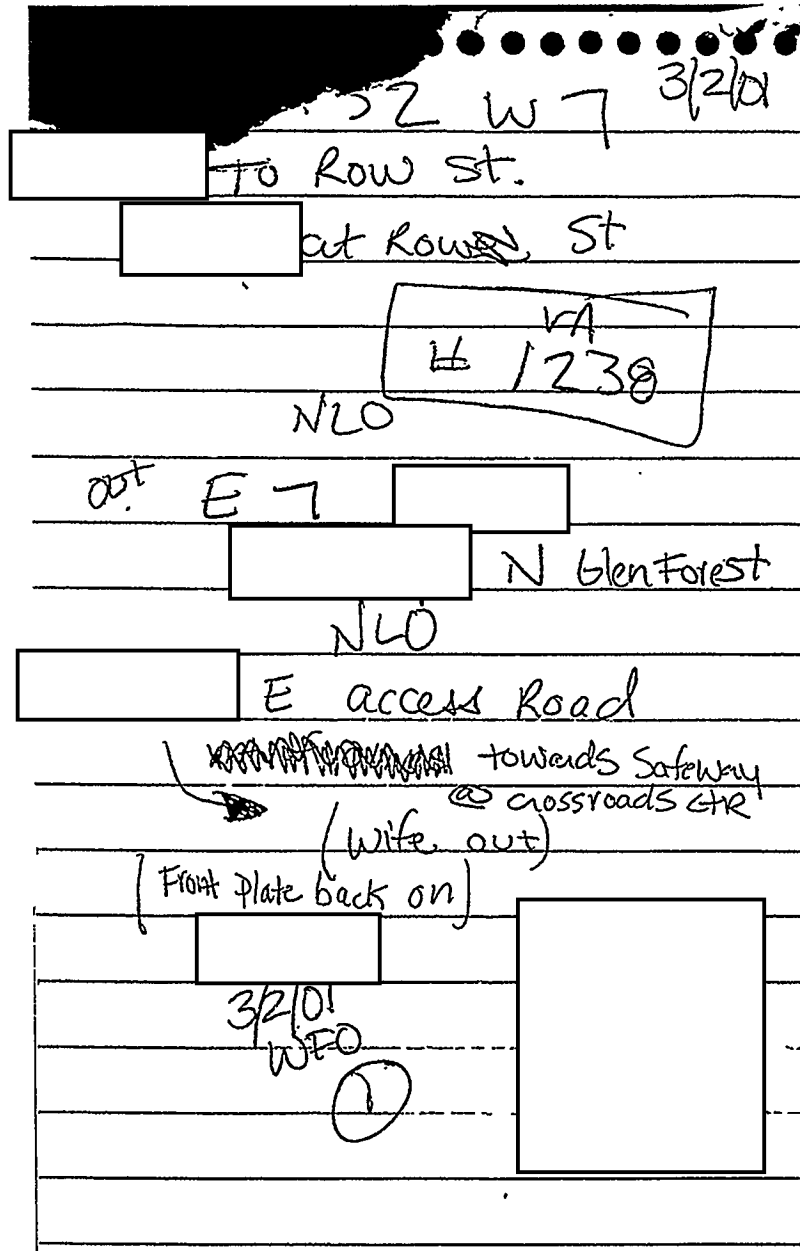 2 W 7 3/2/01
To Row St.
at Row St
VA
# 1238
NLO
out E 7
N Glen Forest
NLO
E access Road
towards Safeway
@ crossroads CTR
(Wife out)
[Front Plate back on]
3/2/01
WFO
1